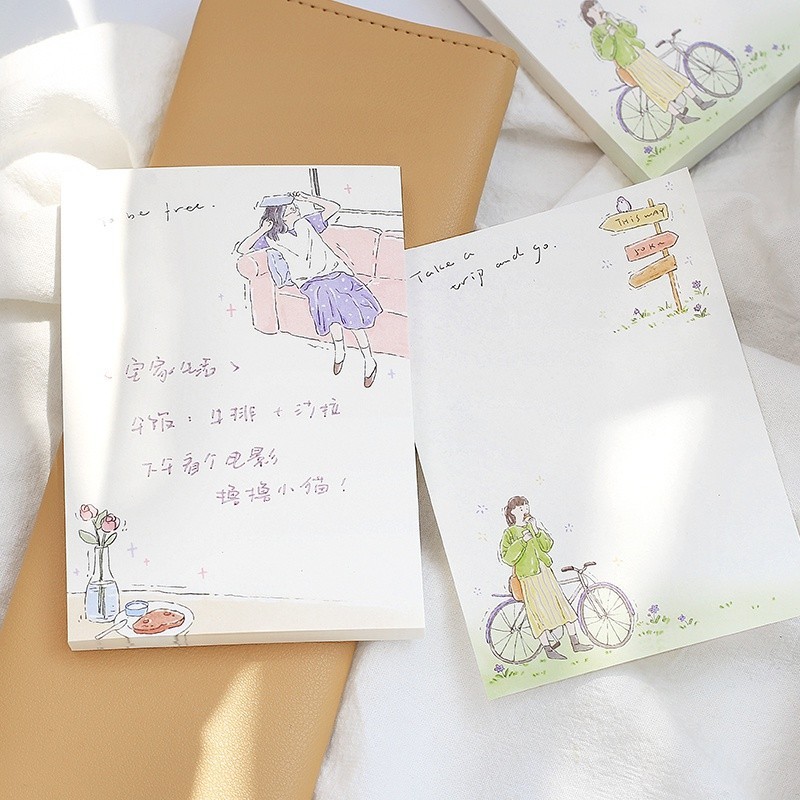 to be free.
< 宅家生活 >
午饭: 牛排 + 沙拉
下午看个电影
撸撸小猫!
Take a
trip and go.
THIS WAY